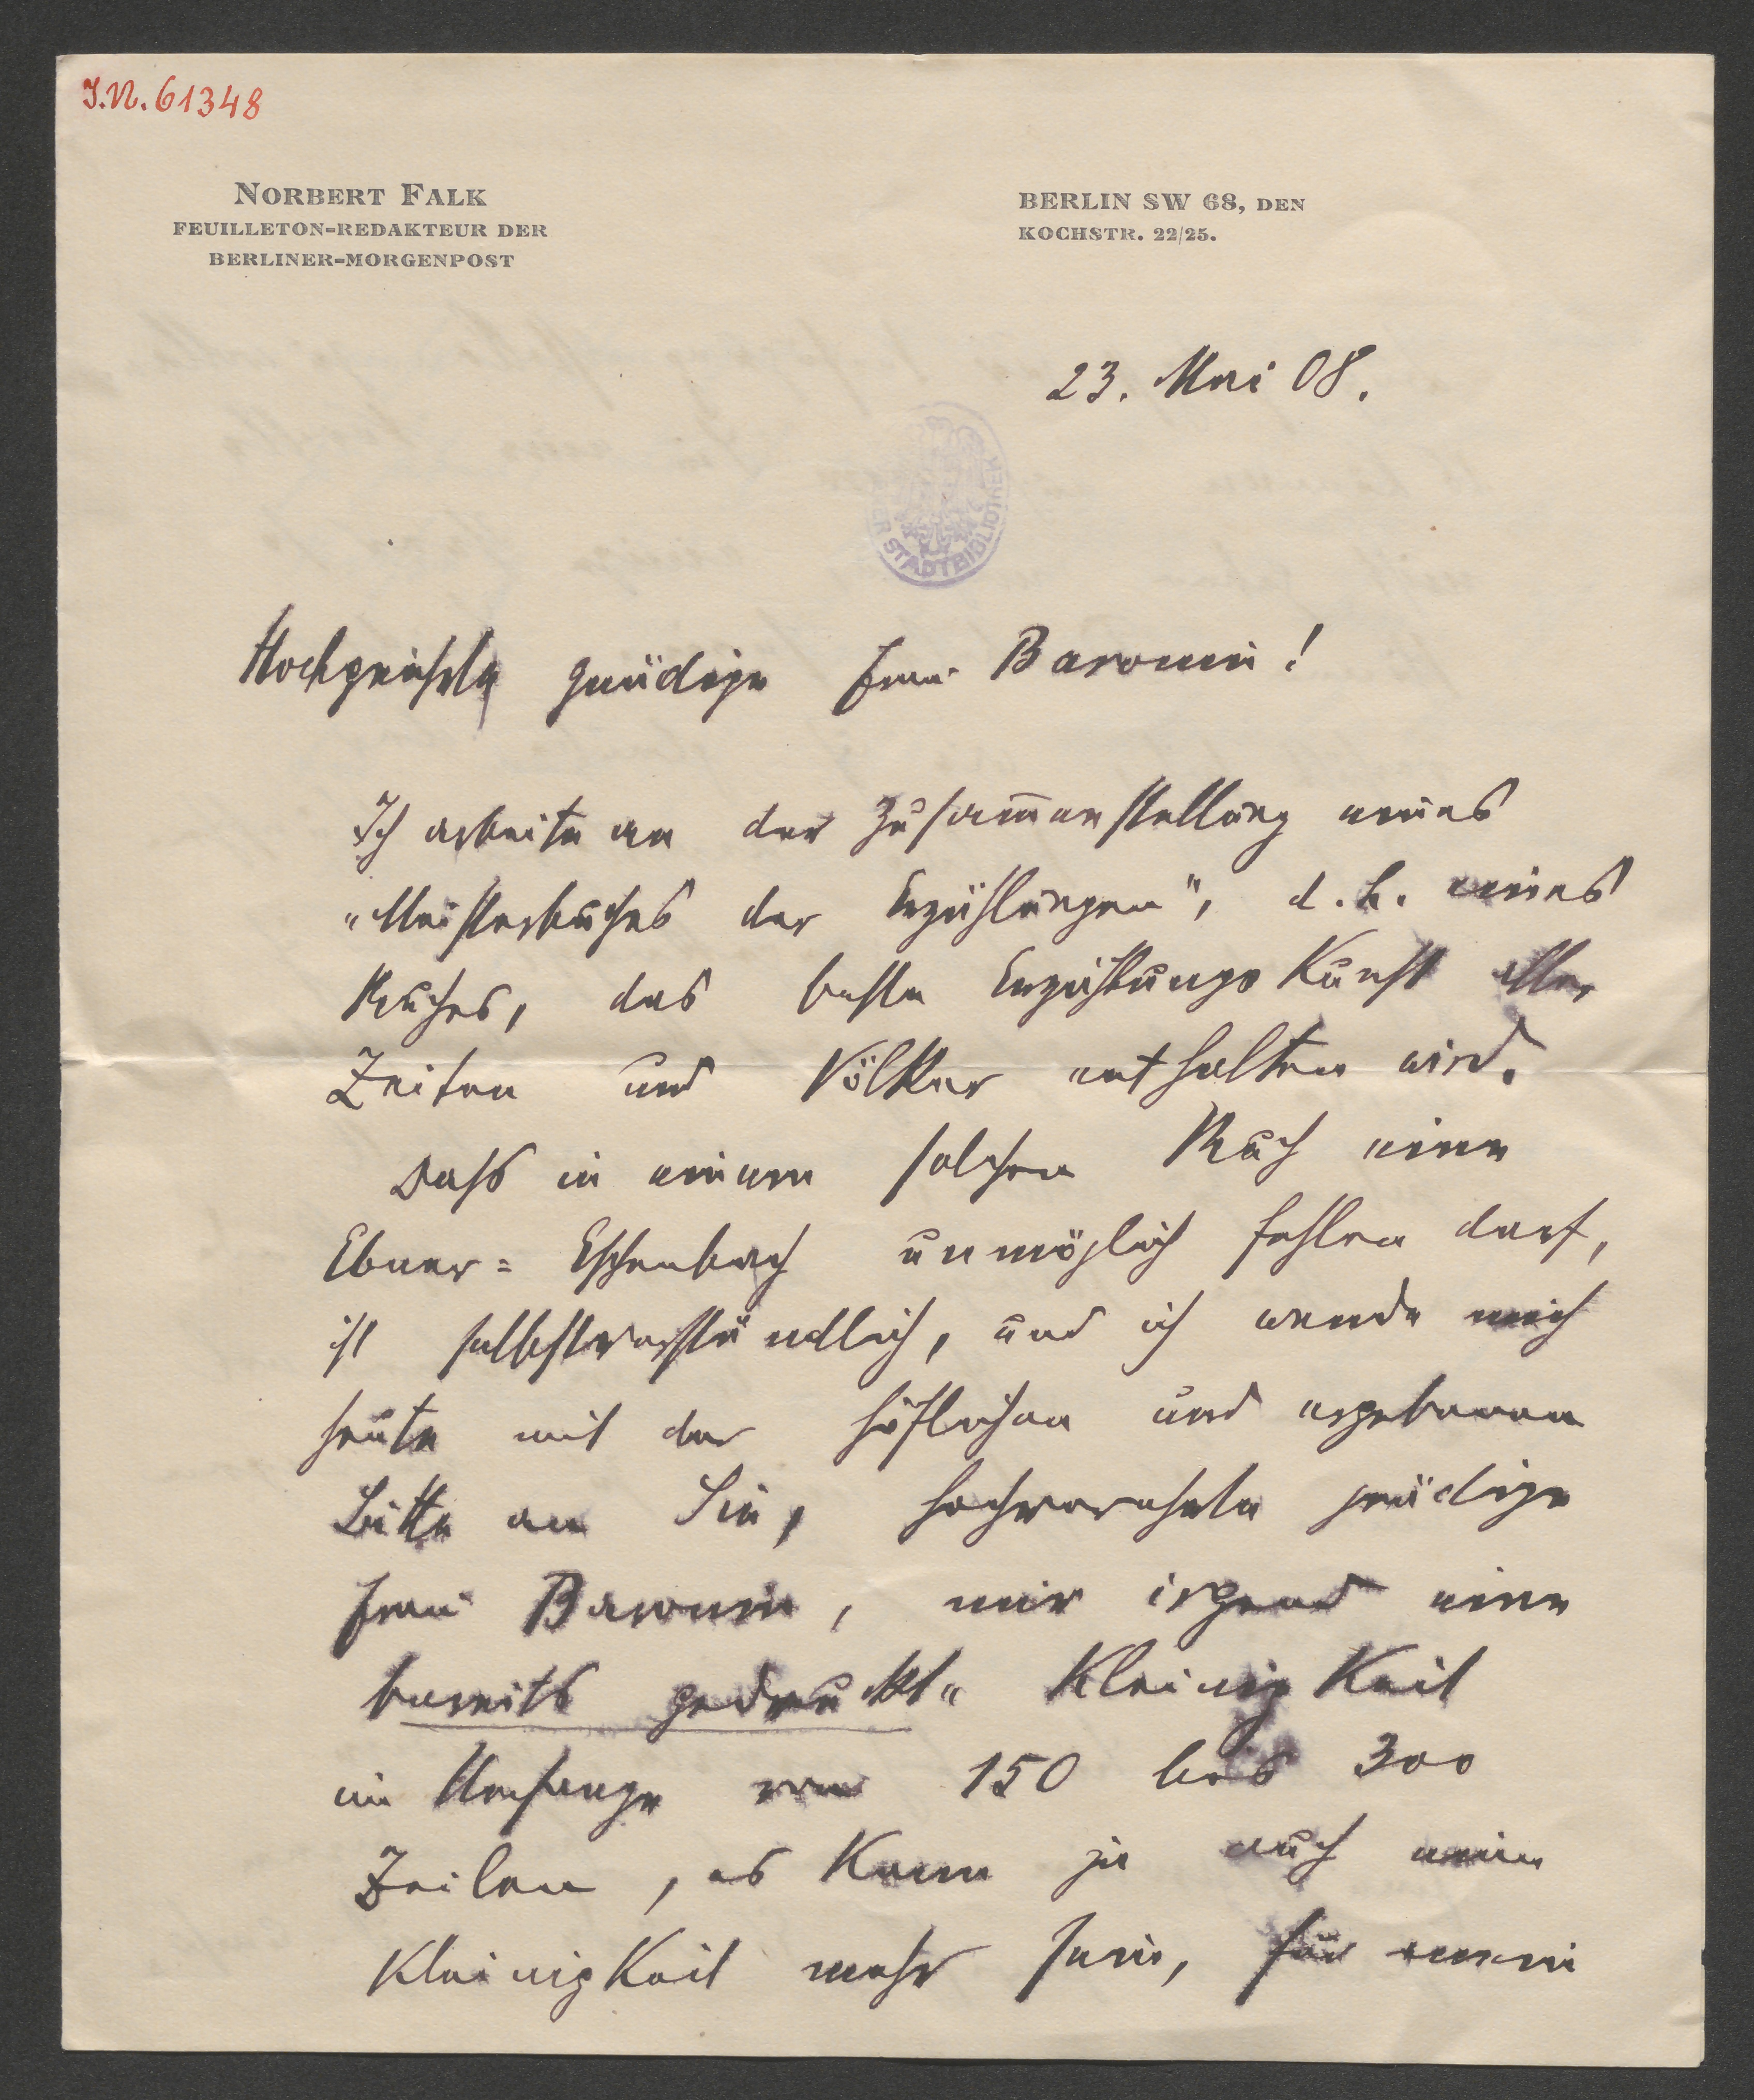 J.N. 61348
NORBERT FALK
FEUILLETON-REDAKTEUR DER
BERLINER-MORGENPOST
BERLIN SW 68, DEN
KOCHSTR. 22/25.
23. Mai 08.
STADTBIBLIOTHEK
Hochgeehrte gnädige Frau Baronin!
Ich arbeite an der Zusam̄enstellung eines
„Meisterbuches der Erzählungen", d. h. eines
Buches, das beste Erzählungskunst aller
Zeiten und Völker enthalten wird.
Dass in einem solchen Buch eine
Ebner=Eschenbach unmöglich fehlen darf,
ist selbstverständlich, und ich wende mich
heute mit der höflichen und ergebenen
Bitte an Sie, hochverehrte gnädige
Frau Baronin, mir irgend eine
bereits gedruckte Kleinigkeit
im Umfange von 150 bis 300
Zeilen, es kann ja auch eine
Kleinigkeit mehr sein, für mein